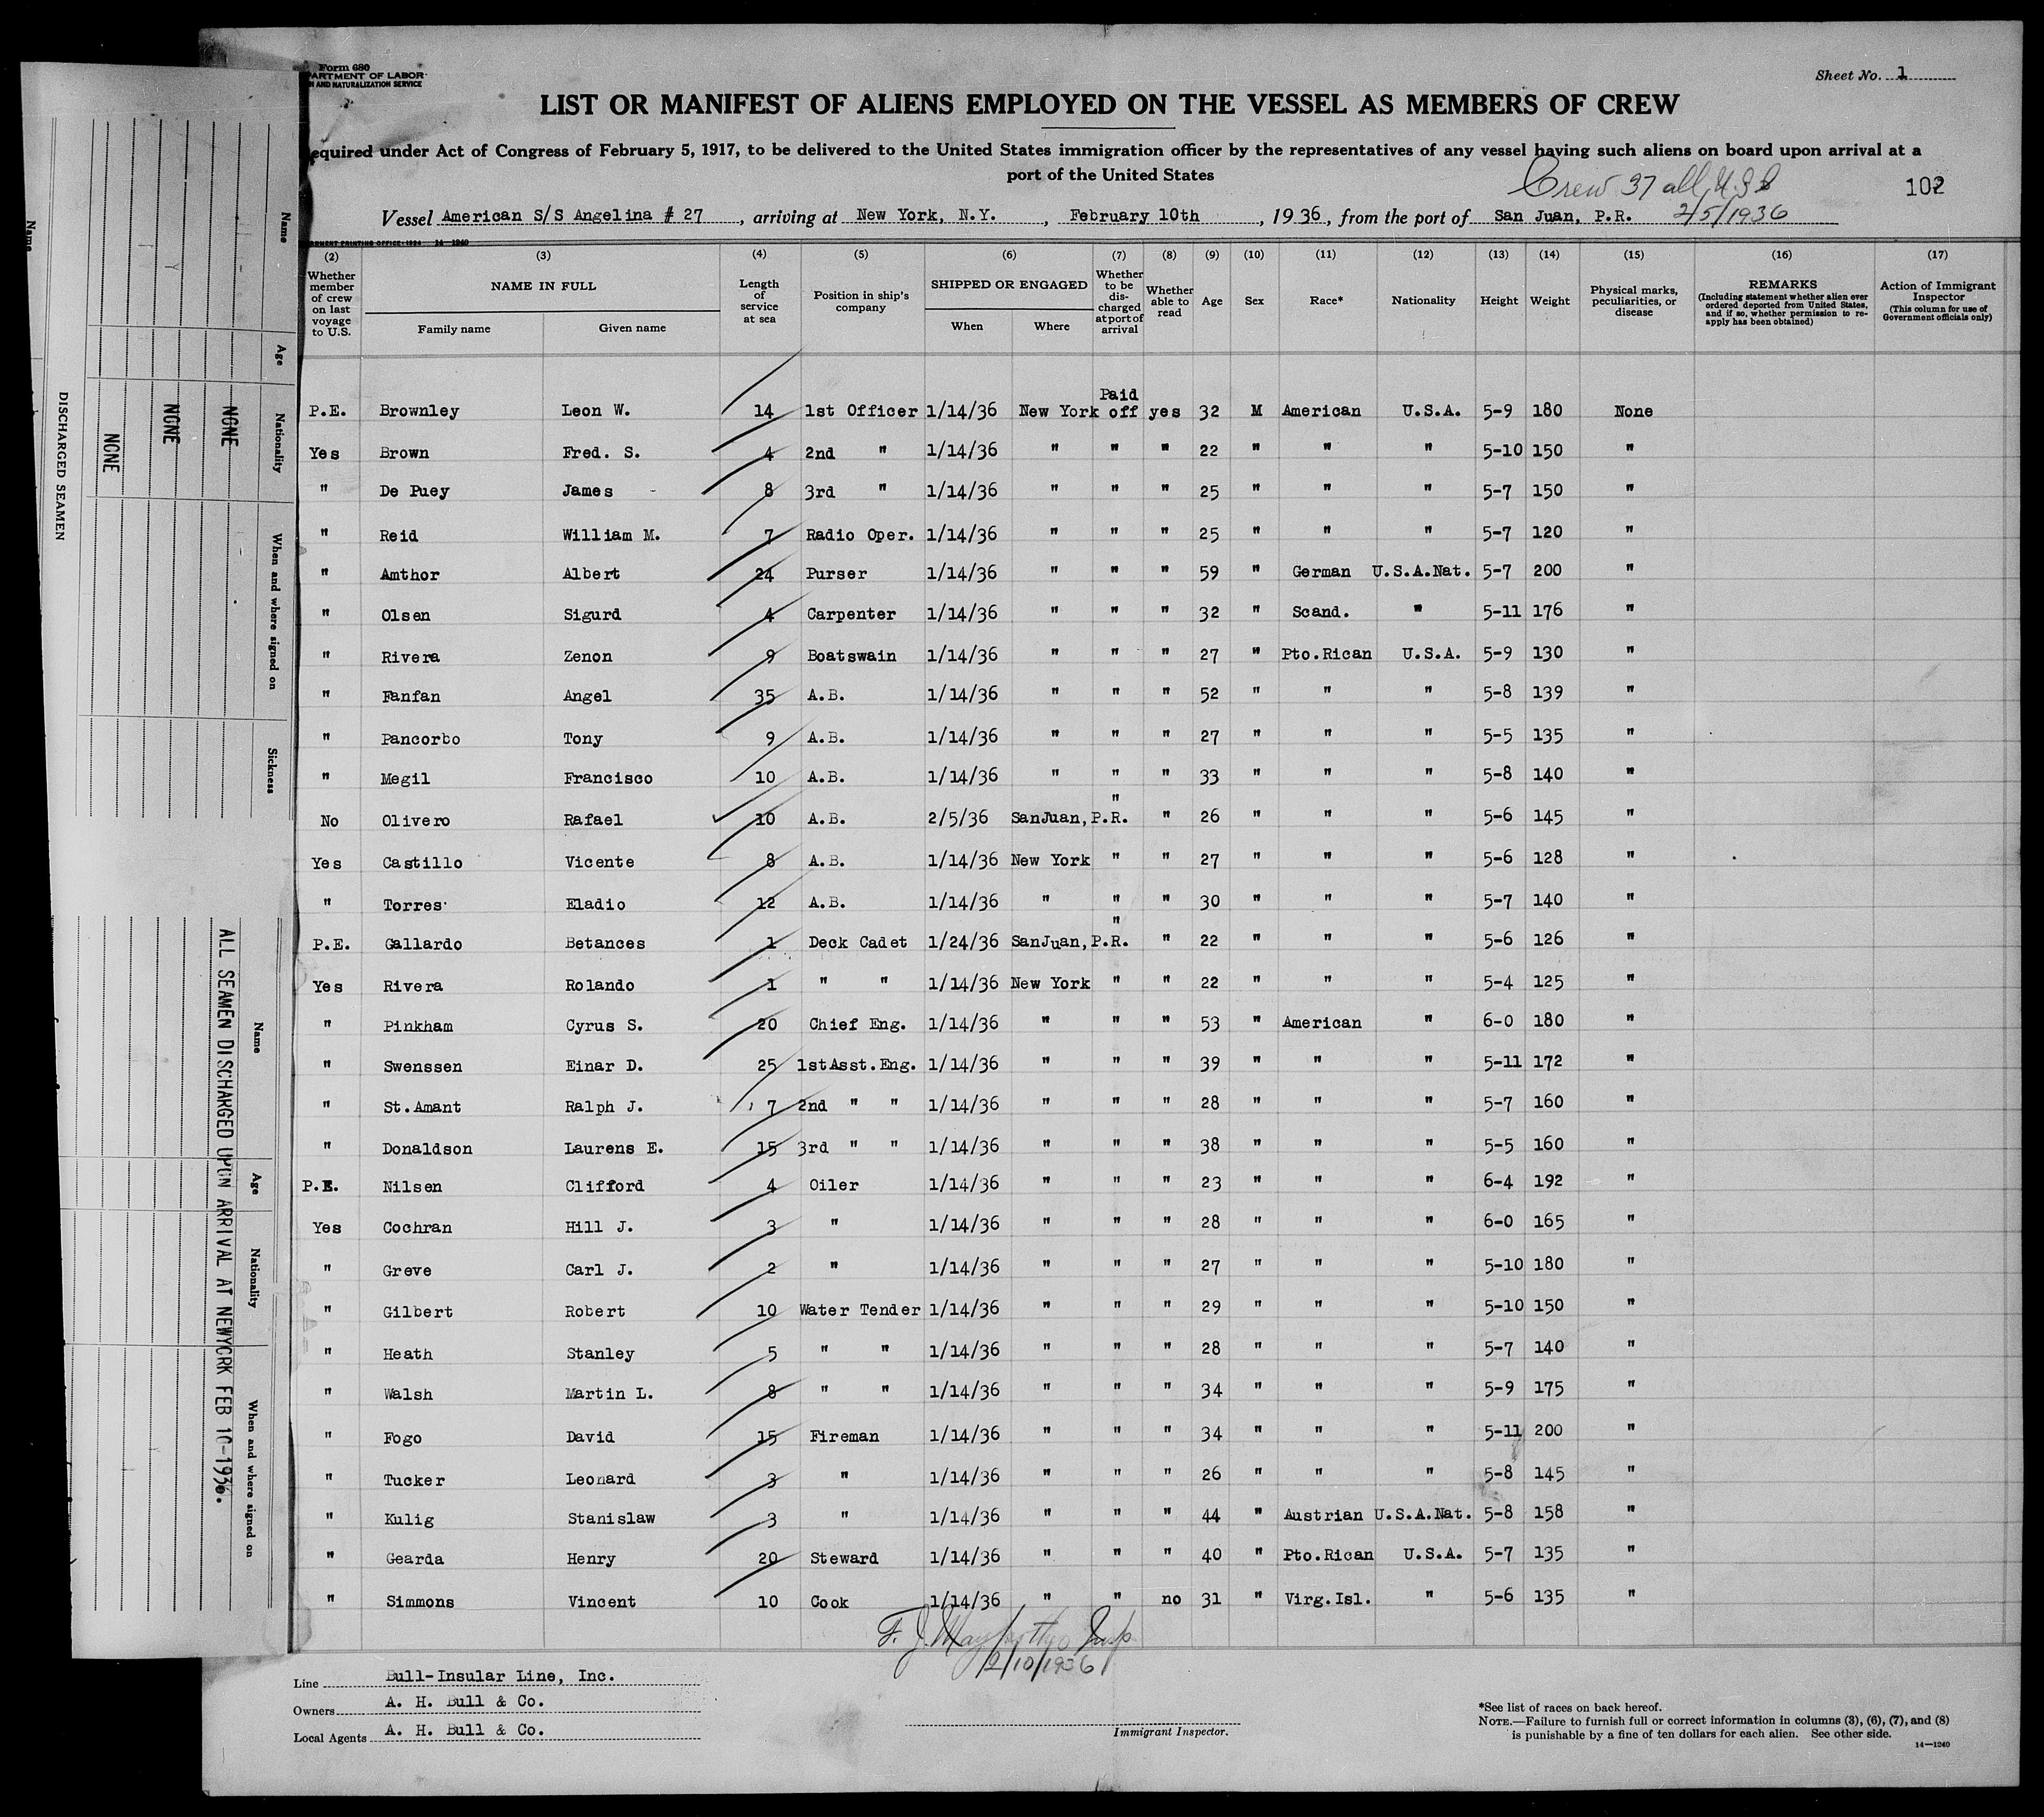 Form 680
PARTMENT OF LABOR
N AND NATURALIZATION SERVICE
Sheet No. 1
LIST OR MANIFEST OF ALIENS EMPLOYED ON THE VESSEL AS MEMBERS OF CREW
equired under Act of Congress of February 5, 1917, to be delivered to the United States immigration officer by the representatives of any vessel having such aliens on board upon arrival at a
port of the United States
Crew 37 all U.S.
102
Vessel American S/S Angelina # 27, arriving at New York, N.Y., February 10th, 1936, from the port of San Juan, P.R. 2/5/1936
RNMENT PRINTING OFFICE: 1934 14—1240
(2) (3) (4) (5) (6) (7) (8) (9) (10) (11) (12) (13) (14) (15) (16) (17)
Whether member of crew on last voyage to U.S. NAME IN FULL Family name Given name Length of service at sea Position in ship's company SHIPPED OR ENGAGED When Where Whether to be discharged at port of arrival Whether able to read Age Sex Race* Nationality Height Weight Physical marks, peculiarities, or disease REMARKS (Including statement whether alien ever ordered deported from United States, and if so, whether permission to reapply has been obtained) Action of Immigrant Inspector (This column for use of Government officials only)
P.E. Brownley Leon W. 14 1st Officer 1/14/36 New York Paid off yes 32 M American U.S.A. 5-9 180 None
Yes Brown Fred. S. 4 2nd " 1/14/36 " " " 22 " " " 5-10 150 "
" De Puey James 8 3rd " 1/14/36 " " " 25 " " " 5-7 150 "
" Reid William M. 7 Radio Oper. 1/14/36 " " " 25 " " " 5-7 120 "
" Amthor Albert 24 Purser 1/14/36 " " " 59 " German U.S.A.Nat. 5-7 200 "
" Olsen Sigurd 4 Carpenter 1/14/36 " " " 32 " Scand. " 5-11 176 "
" Rivera Zenon 9 Boatswain 1/14/36 " " " 27 " Pto.Rican U.S.A. 5-9 130 "
" Fanfan Angel 35 A.B. 1/14/36 " " " 52 " " " 5-8 139 "
" Pancorbo Tony 9 A.B. 1/14/36 " " " 27 " " " 5-5 135 "
" Megil Francisco 10 A.B. 1/14/36 " " " 33 " " " 5-8 140 "
No Olivero Rafael 10 A.B. 2/5/36 SanJuan,P.R. " " 26 " " " 5-6 145 "
Yes Castillo Vicente 8 A.B. 1/14/36 New York " " 27 " " " 5-6 128 "
" Torres Eladio 12 A.B. 1/14/36 " " " 30 " " " 5-7 140 "
P.E. Gallardo Betances 1 Deck Cadet 1/24/36 SanJuan,P.R. " " 22 " " " 5-6 126 "
Yes Rivera Rolando 1 " " 1/14/36 New York " " 22 " " " 5-4 125 "
" Pinkham Cyrus S. 20 Chief Eng. 1/14/36 " " " 53 " American " 6-0 180 "
" Swenssen Einar D. 25 1stAsst.Eng. 1/14/36 " " " 39 " " " 5-11 172 "
" St.Amant Ralph J. 7 2nd " " 1/14/36 " " " 28 " " " 5-7 160 "
" Donaldson Laurens E. 15 3rd " " 1/14/36 " " " 38 " " " 5-5 160 "
P.E. Nilsen Clifford 4 Oiler 1/14/36 " " " 23 " " " 6-4 192 "
Yes Cochran Hill J. 3 " 1/14/36 " " " 28 " " " 6-0 165 "
" Greve Carl J. 2 " 1/14/36 " " " 27 " " " 5-10 180 "
" Gilbert Robert 10 Water Tender 1/14/36 " " " 29 " " " 5-10 150 "
" Heath Stanley 5 " " 1/14/36 " " " 28 " " " 5-7 140 "
" Walsh Martin L. 8 " " 1/14/36 " " " 34 " " " 5-9 175 "
" Fogo David 15 Fireman 1/14/36 " " " 34 " " " 5-11 200 "
" Tucker Leonard 3 " 1/14/36 " " " 26 " " " 5-8 145 "
" Kulig Stanislaw 3 " 1/14/36 " " " 44 " Austrian U.S.A.Nat. 5-8 158 "
" Gearda Henry 20 Steward 1/14/36 " " " 40 " Pto.Rican U.S.A. 5-7 135 "
" Simmons Vincent 10 Cook 1/14/36 " " no 31 " Virg.Isl. " 5-6 135 "
F. J. Insp
2/10/1936
Line Bull-Insular Line, Inc.
Owners A. H. Bull & Co.
Local Agents A. H. Bull & Co.
Immigrant Inspector.
*See list of races on back hereof.
NOTE.—Failure to furnish full or correct information in columns (3), (6), (7), and (8)
is punishable by a fine of ten dollars for each alien. See other side.
14—1240
Name
DISCHARGED SEAMEN
Name Age Nationality When and where signed on Sickness
NONE
NONE
NONE
Name Age Nationality When and where signed on
ALL SEAMEN DISCHARGED UPON ARRIVAL AT NEWYORK FEB 10-1936.